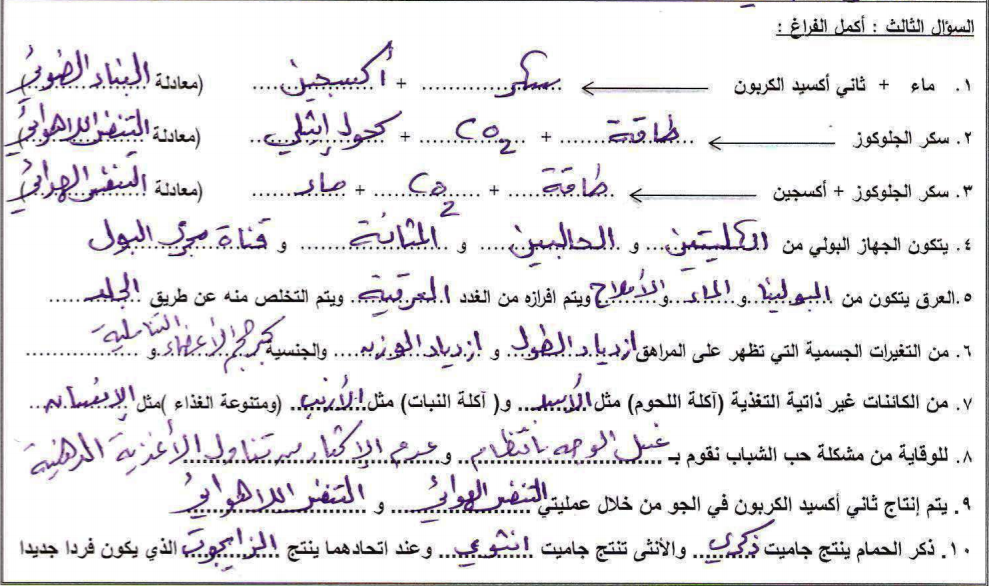 السؤال الثالث : أكمل الفراغ :
١. ماء + ثاني أكسيد الكربون ← سكر + أكسجين (معادلة البناء الضوئي)
٢. سكر الجلوكوز ← طاقة + CO2 + كحول إيثلي (معادلة التنفس اللاهوائي)
٣. سكر الجلوكوز + أكسجين ← طاقة + CO2 + ماء (معادلة التنفس الهوائي)
٤. يتكون الجهاز البولي من الكليتين و الحالبين و المثانة و قناة مجرى البول
٥.العرق يتكون من البولينا و الماء و الأملاح ويتم افرازه من الغدد العرقية ويتم التخلص منه عن طريق الجلد
٦. من التغيرات الجسمية التي تظهر على المراهق ازدياد الطول و ازدياد الوزن والجنسية كبر حجم الأعضاء التناسلية و
٧. من الكائنات غير ذاتية التغذية (آكلة اللحوم) مثل الأسد و( آكلة النبات) مثل الأرنب (ومتنوعة الغذاء )مثل الإنسان
٨. للوقاية من مشكلة حب الشباب نقوم بـ غسل الوجه بانتظام و عدم الإكثار من تناول الأغذية الدهنية
٩. يتم إنتاج ثاني أكسيد الكربون في الجو من خلال عمليتي التنفس الهوائي و التنفس اللاهوائي
١٠. ذكر الحمام ينتج جاميت ذكري والأنثى تنتج جاميت انثوي وعند اتحادهما ينتج الزايجوت الذي يكون فردا جديدا